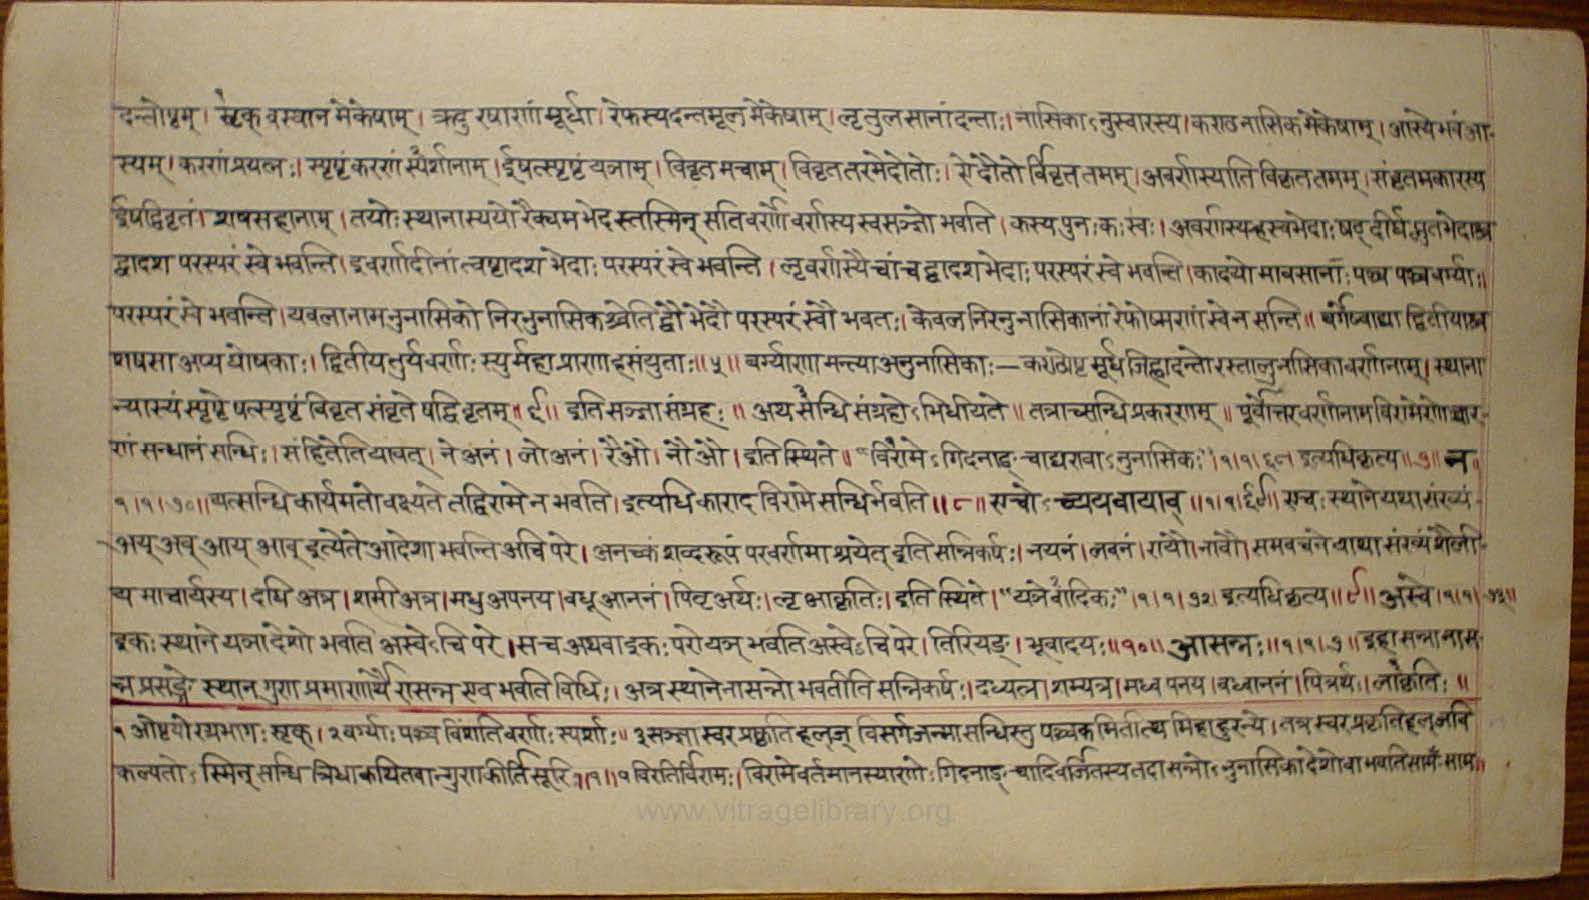 दन्तोष्ठम् । सृक्वस्थानमेकेषाम् । ऋटुरषाणां मूर्धा । रेफस्य दन्तमूलमेकेषाम् । लृतुलसानां दन्ताः । नासिकाऽनुस्वारस्य । कण्ठनासिकमेकेषाम् । आस्ये भवं आ-
स्यम् । करणं प्रयत्नः । स्पृष्टं करणं स्पर्शानाम् । ईषत्स्पृष्टं यञाम् । विवृतमचाम् । विवृततरमेदोतोः । ऐदौतोर्विवृततमम् । अवर्णस्यातिविवृततमम् । संवृतमकारस्य
ईषद्विवृतं शषसहानाम् । तयोः स्थानास्ययोरैक्यमभेदस्तस्मिन् सति वर्णो वर्णस्य स्वसञ्ज्ञो भवति । कस्य पुनः कः स्वः । अवर्णस्य ह्रस्वभेदाः षट् दीर्घप्लुतभेदाश्च
द्वादश परस्परं स्वे भवन्ति । इवर्णादीनां त्वष्टादश भेदाः परस्परं स्वे भवन्ति । लृवर्णस्यैचां च द्वादश भेदाः परस्परं स्वे भवन्ति । कादयो मावसानाः पञ्च पञ्च वर्ग्याः ॥
परस्परं स्वे भवन्ति । यवलानामनुनासिको निरनुनासिकश्चेति द्वौ भेदौ परस्परं स्वौ भवतः । केवलनिरनुनासिकानां रेफोष्मणां स्वे न सन्ति ॥ वर्गेष्वाद्या द्वितीयाश्च
शषसा अप्यघोषकाः । द्वितीयतुर्यवर्णाः स्युर्महाप्राणा हसंयुताः ॥ ५ ॥ वर्ग्याणामन्त्या अनुनासिकाः — कण्ठोष्ठमूर्धजिह्वादन्तोरस्तालुनासिका वर्णानाम् । स्थाना
न्यास्यं स्पृष्टेषत्स्पृष्टं विवृतसंवृतेषद्विवृतम् ॥ ६ ॥ इति सञ्ज्ञासंग्रहः ॥ अथ सन्धिसंग्रहोऽभिधीयते ॥ तत्राच्सन्धिप्रकरणम् ॥ पूर्वोत्तरवर्णानामविरामेणोच्चार-
णं सन्धानं सन्धिः । संहितेति यावत् । ने अनं । लो अनं । रै औ । नौ औ । इति स्थिते ॥ "विरामेऽगिदनाङ्चाद्यणवाऽनुनासिकः" । १ । १ । ६७ इत्यधिकृत्य ॥ ७ ॥ न
१ । १ । ७० ॥ यत्सन्धिकार्यमतो वक्ष्यते तद्विरामे न भवति । इत्यधिकारादविरामे सन्धिर्भवति ॥ ८ ॥ एचोऽच्ययवायाव् ॥ १ । १ । ६९ ॥ एचः स्थाने यथासंख्यं-
अय् अव् आय् आव् इत्येते आदेशा भवन्ति अचि परे । अनच्कं शब्दरूपं परवर्णमाश्रयेत् इति सन्निकर्षः । नयनं । लवनं । रायौ । नावौ । समवचने यथासंख्यं शैली-
य माचार्यस्य । दधि अत्र । शमी अत्र । मधु अपनय । वधू आननं । पितृ अर्थः । लृ आकृतिः । इति स्थिते । १ । १ । ७२ इत्यधिकृत्य ॥ ९ ॥ अस्वे । १ । १ । ७३ ॥
इकः स्थाने यञादेशो भवति अस्वेऽचि परे । स च अथवा इकः परो यञ् भवति अस्वेऽचि परे । तिरियङ् । भूवादयः ॥ १० ॥ आसन्नः ॥ १ । १ । ७ ॥ इहासन्नानास-
न्नप्रसङ्गे स्थानगुणप्रमाणार्थैरासन्न एव भवति विधिः । अत्र स्थानेनासन्नो भवतीति सन्निकर्षः । दध्यत्र । शम्यत्र । मध्वपनय । वध्वाननं । पित्रर्थः । लाकृतिः ॥
१ ओष्ठयोरग्रभागः सृक् । २ वर्ग्याः पञ्चविंशतिवर्णाः स्पर्शाः ॥ ३ सञ्ज्ञास्वरप्रकृतिहल्ज्विसर्गजन्मा सन्धिस्तु पञ्चकमितीत्थमिहाहुरन्ये । तत्र स्वरप्रकृतिहल्ज्वि
कल्पतोऽस्मिन् सन्धिं त्रिधा कथितवान्गुणकीर्तिसूरिः । १ ॥ ७ विरतिर्विरामः । विरामे वर्तमानस्याणोऽगिदनाङ्चादिवर्जितस्य तदासन्नोऽनुनासिकादेशो वा भवति सामँ साम ॥
www.vitragelibrary.org